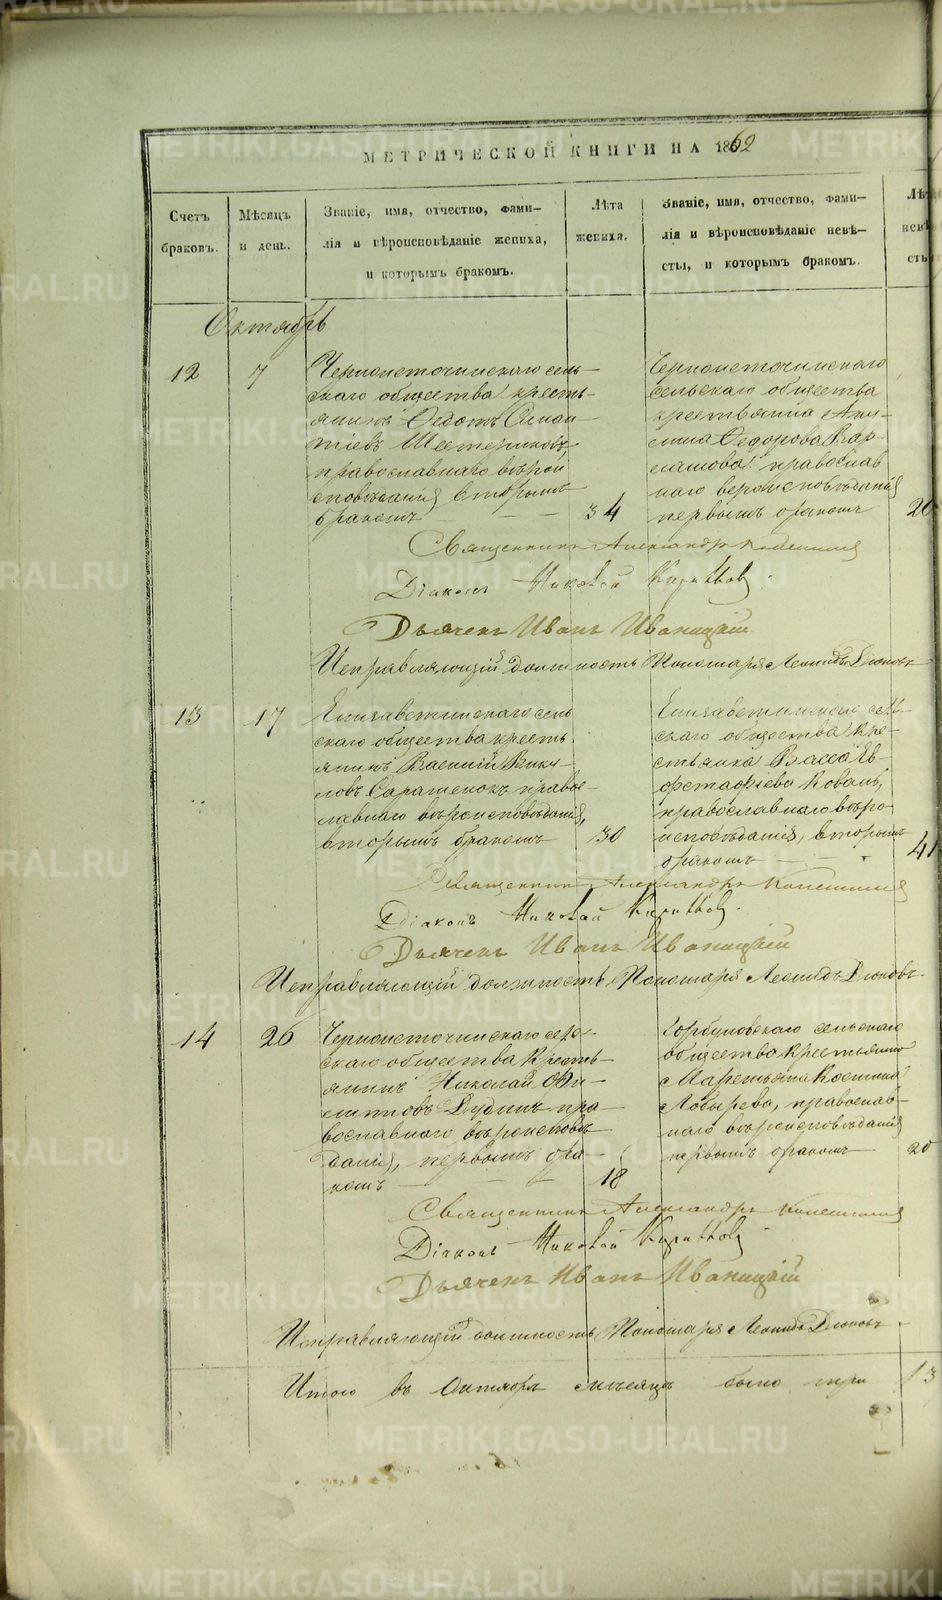 МЕТРИЧЕСКОЙ КНИГИ НА 1862
Счетъ браковъ.
Мѣсяцъ и день.
Званіе, имя, отчество, фами-
лія и вѣроисповѣданіе жениха,
и которымъ бракомъ.
Лѣта жениха.
Званіе, имя, отчество, фами-
лія и вѣроисповѣданіе невѣ-
сты, и которымъ бракомъ.
Октябрь
12
7
Черноисточинскаго сель-
скаго общества кресть-
янинъ Федотъ
православнаго вѣрои
сповѣданія вторымъ
бракомъ
34
Черноисточинскаго
сельскаго общества
крестьянка Аку-
лина Федорова Вар-
лашова православ
наго вероисповѣданія
первымъ бракомъ
20
Священникъ Александръ
Діаконъ Николай
Дьячекъ Иванъ Иваницкій
Исправляющій должность Пономаря Леонидъ
13
17
Елизаветинскаго сель
скаго общества кресть
янинъ Василій Вику-
ловъ Сарапенокъ право-
славнаго вѣроисповѣданія,
вторымъ бракомъ
30
Елизаветинскаго сель-
скаго общества кре-
стьянка Васса Ев-
фстафіева Коваль,
православнаго вѣро-
исповѣданія, вторымъ
бракомъ
41
Священникъ Александръ
Діаконъ Николай
Дьячекъ Иванъ Иваницкій
Исправляющій должность Пономаря Леонидъ
14
26
Черноисточинскаго сель-
скаго общества кресть-
янинъ Николай Фи-
липповъ Дудинъ пра-
вославнаго вѣроисповѣ
данія, первымъ бра-
комъ
18
Горбуновскаго сельскаго
общества крестьянка
Маремьяна Косьмина
Лобырева, православ-
наго вѣроисповѣданія
первымъ бракомъ
20
Священникъ Александръ
Діаконъ Николай
Дьячекъ Иванъ Иваницкій
Исправляющій должность Пономаря Леонидъ
Итого въ Октябрѣ мѣсяцѣ было три
13
METRIKI.GASO-URAL.RU